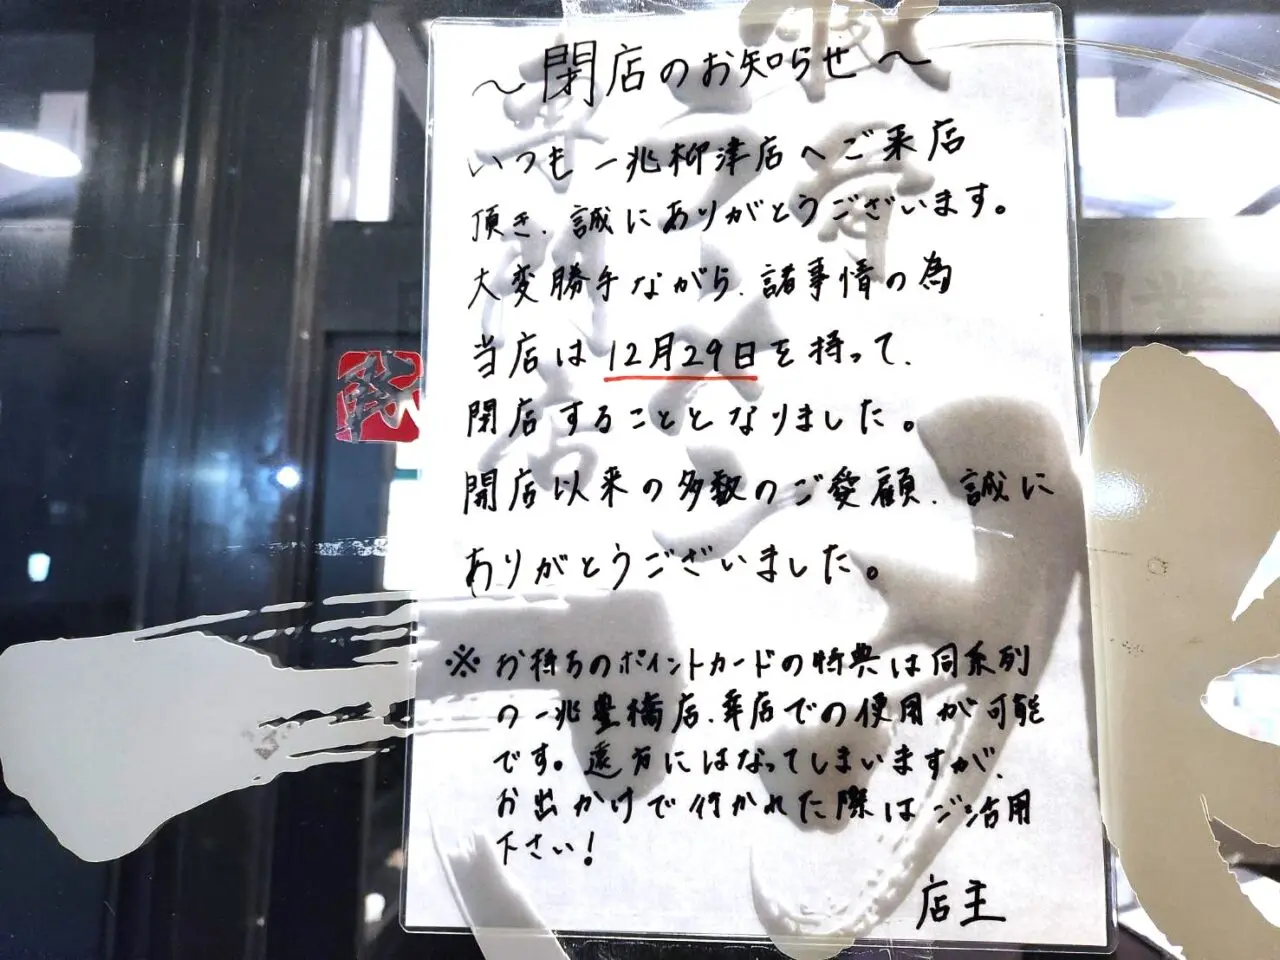 ～閉店のお知らせ～
いつも一兆柳津店へご来店
頂き、誠にありがとうございます。
大変勝手ながら、諸事情の為
当店は12月29日を持って、
閉店することとなりました。
開店以来の多数のご愛顧、誠に
ありがとうございました。
※お持ちのポイントカードの特典は同系列
の一兆豊橋店、幸店での使用が可能
です。遠方にはなってしまいますが、
お出かけで行かれた際はご活用
下さい！
店主
豚